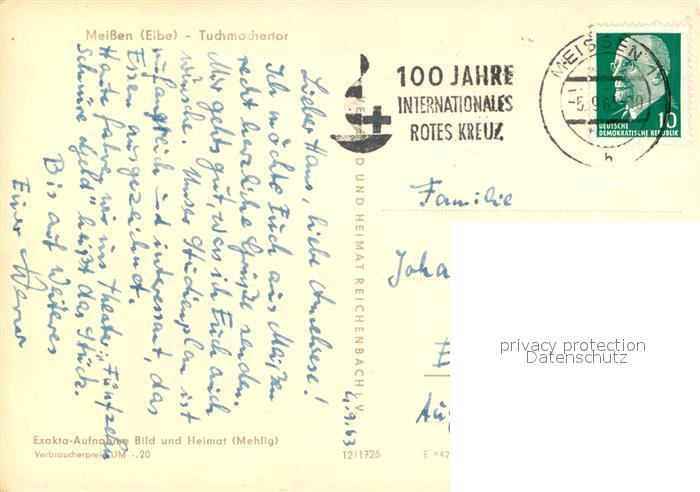 Meißen (Elbe) - Tuchmachertor
100 JAHRE
INTERNATIONALES
ROTES KREUZ
MEISSEN 1
-5.9.6
h
DEUTSCHE
DEMOKRATISCHE REPUBLIK
10
Lieber Hans, liebe Annelrese!
Ich möchte Euch aus Meißen
recht herzliche Grüße senden.
Mir gehts gut, was ich Euch auch
wünsche. Unser Studienplan ist
umfangreich und interessant, das
Essen ausgezeichnet.
Heute fahren wir ins Theater. "Fünfzehn
Schnüre Geld" heißt das Stück.
Bis auf Weiteres
Euer Werner
4.9.63
UND HEIMAT REICHENBACH I. V.
Familie
Joha
E
Aug
privacy protection
Datenschutz
Exakta-Aufnahme Bild und Heimat (Mehlig)
Verbraucherpreis DM -.20
12/1726
E 842